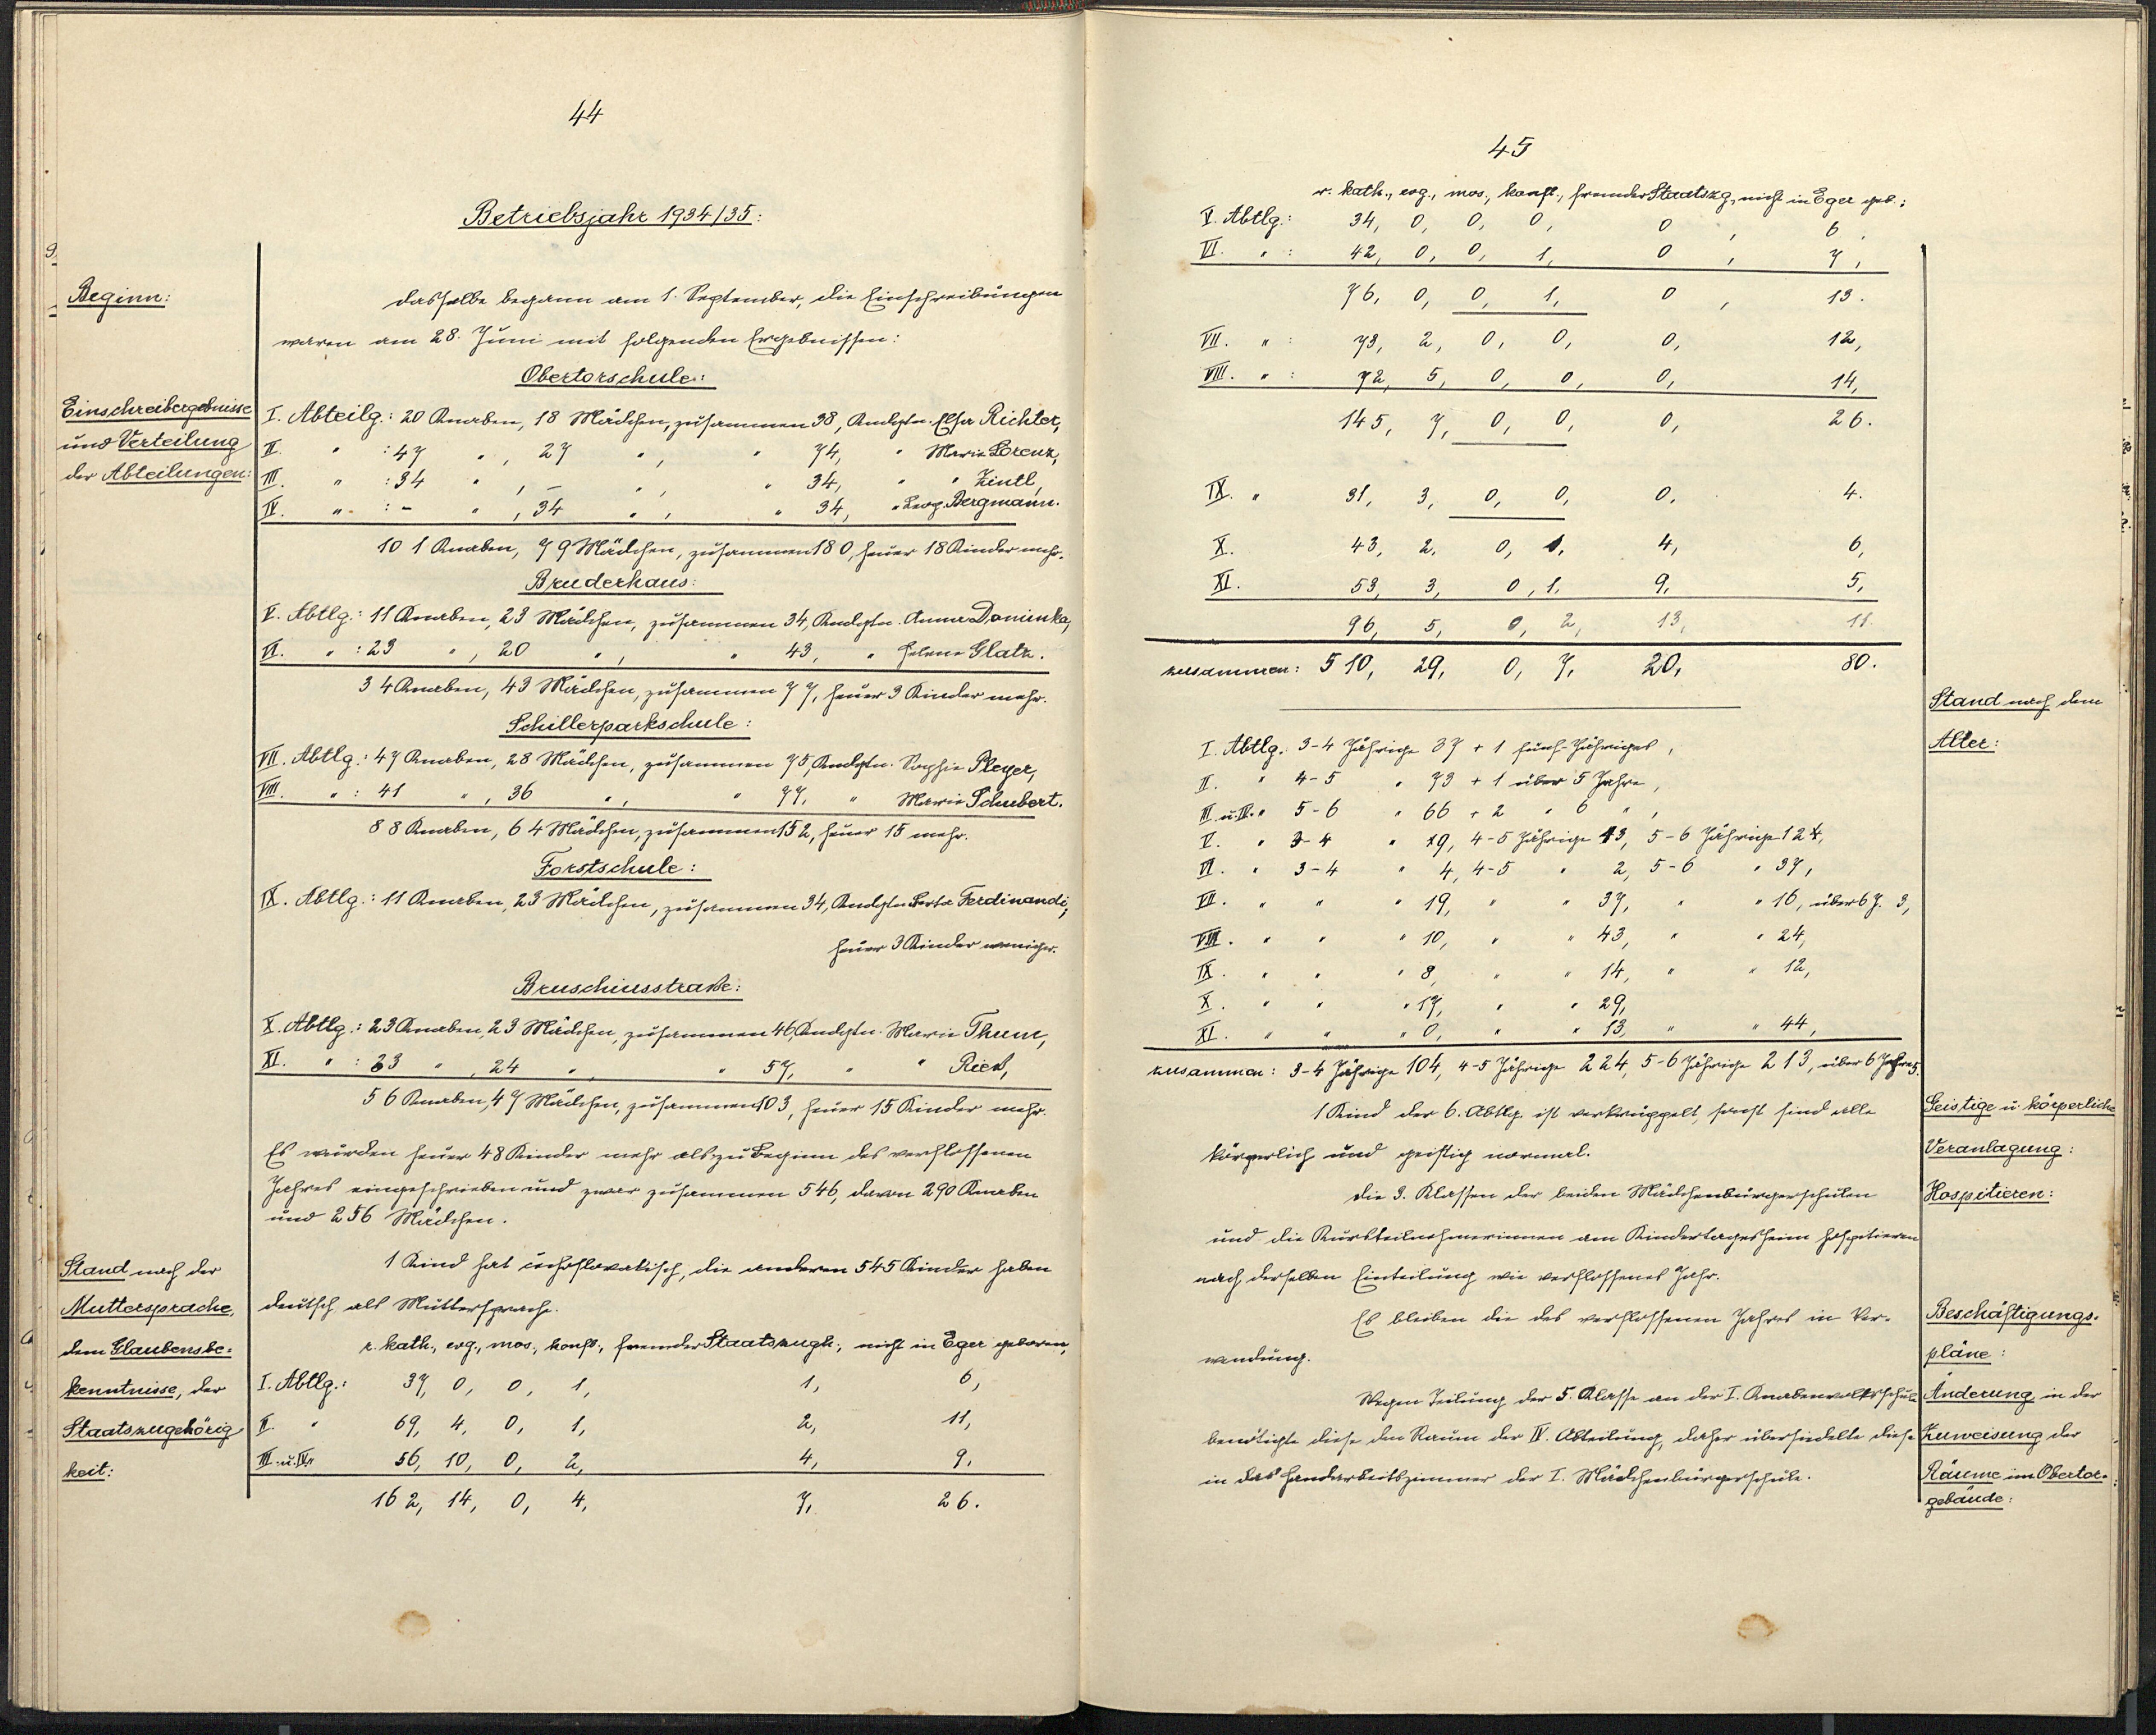 44
Betriebsjahr 1934/35:
Beginn:
Dasselbe begann am 1. September, die Einschreibungen
waren am 28. Juni mit folgenden Ergebnissen:
Obertorschule:
Einschreibergebnisse
und Verteilung
der Abteilungen:
I. Abteilg.: 20 Knaben, 18 Mädchen, zusammen 38, Kndgtn. Elsa Richter,
II. " : 47 " , 27 " , " 74, " Marie Lorenz,
III. " : 34 " , – " , " 34, " " Zintl,
IV. " : – " , 34 " , " 34, " Leop. Bergmann.
101 Knaben, 79 Mädchen, zusammen 180, heuer 18 Kinder mehr.
Bruderhaus:
V. Abtlg.: 11 Knaben, 23 Mädchen, zusammen 34, Kndgtn. Anna Dominka,
VI. " : 23 " , 20 " , " 43, " Helene Glatz.
34 Knaben, 43 Mädchen, zusammen 77, heuer 3 Kinder mehr.
Schillerparkschule:
VII. Abtlg.: 47 Knaben, 28 Mädchen, zusammen 75, Kndgtn. Sophie Pleyer,
VIII. " : 41 " , 36 " , " 77, " Marie Schubert.
88 Knaben, 64 Mädchen, zusammen 152, heuer 15 mehr.
Forstschule:
IX. Abtlg.: 11 Knaben, 23 Mädchen, zusammen 34, Kndgtn. Berta Ferdinandi,
heuer 3 Kinder weniger.
Bruschiusstraße:
X. Abtlg.: 23 Knaben, 23 Mädchen, zusammen 46, Kndgtn. Marie Thum,
XI. " : 33 " , 24 " , " 57, " " Riedl,
56 Knaben, 47 Mädchen, zusammen 103, heuer 15 Kinder mehr.
Es wurden heuer 48 Kinder mehr als zu Beginn des verflossenen
Jahres eingeschrieben und zwar zusammen 546, davon 290 Knaben
und 256 Mädchen.
Stand nach der
Muttersprache,
dem Glaubensbe-
kenntnisse, der
Staatszugehörig
keit:
1 Kind hat čechoslovakisch, die anderen 545 Kinder haben
deutsch als Muttersprache.
r. kath., evg., mos., konfl., fremder Staatszugh., nicht in Eger geboren,
I. Abtlg.: 37, 0, 0, 1, 1, 6,
II. " 69, 4, 0, 1, 2, 11,
III. u. IV. " 56, 10, 0, 2, 4, 9.
162, 14, 0, 4, 7, 26.
45
r. kath., evg., mos., konfl., fremder Staatszg., nicht in Eger geb.:
V. Abtlg.: 34, 0, 0, 0, 0, 6.
VI. " : 42, 0, 0, 1, 0, 7,
76, 0, 0, 1, 0, 13.
VII. " : 73, 2, 0, 0, 0, 12,
VIII. " : 72, 5, 0, 0, 0, 14,
145, 7, 0, 0, 0, 26.
IX. " 31, 3, 0, 0, 0. 4.
X. 43, 2, 0, 1, 4, 6,
XI. 53, 3, 0, 1, 9, 5,
96, 5, 0, 2, 13, 11.
zusammen: 510, 29, 0, 7, 20, 80.
Stand nach dem
Alter:
I. Abtlg. 3-4 Jährige 37 + 1 fünf-Jähriges,
II. " 4-5 " 73 + 1 über 5 Jahre,
III. u. IV. " 5-6 " 66 + 2 " 6 " ,
V. " 3-4 " 19, 4-5 Jährige 13, 5-6 Jährige 12,
VI. " 3-4 " 4, 4-5 " 2, 5-6 " 37,
VII. " " " 19, " " 37, " " 16, über 6 J. 3,
VIII. " " " 10, " " 43, " " 24,
IX. " " " 8, " " 14, " " 12,
X. " " " 17, " " 29,
XI. " " " 0, " " 13, " " 44,
zusammen: 3-4 Jährige 104, 4-5 Jährige 224, 5-6 Jährige 213, über 6 Jahre 5.
Geistige u. körperliche
Veranlagung:
1 Kind der 6. Abtlg. ist verkrüppelt, sonst sind alle
körperlich und geistig normal.
Hospitieren:
Die 3. Klassen der beiden Mädchenbürgerschulen
und die Kursteilnehmerinnen am Kindertagesheim hospitieren
nach derselben Einteilung wie verflossenes Jahr.
Beschäftigungs-
pläne:
Es bleiben die des verflossenen Jahres in Ver-
wendung.
Änderung in der
Zuweisung der
Räume im Obertor-
gebäude:
Wegen Teilung der 5. Klasse an der I. Knabenvolksschule
benötigte diese den Raum der IV. Abteilung, daher übersiedelte diese
in das Handarbeitszimmer der I. Mädchenbürgerschule.